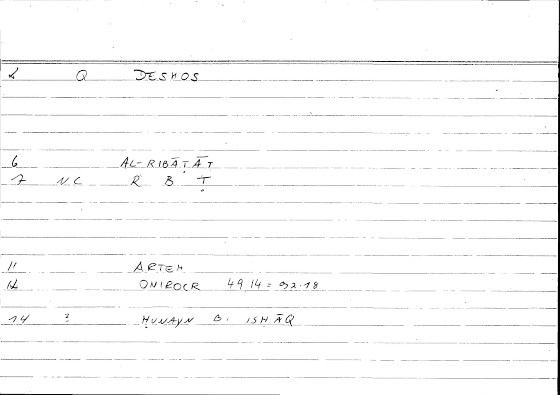 2 Q DESMOS
6 AL-RIBĀṬĀT
7 N.C R B Ṭ
11 ARTEM
12 ONIROCR 49,14 = 92.18
14 ? ḤUNAYN B. ISḤĀQ